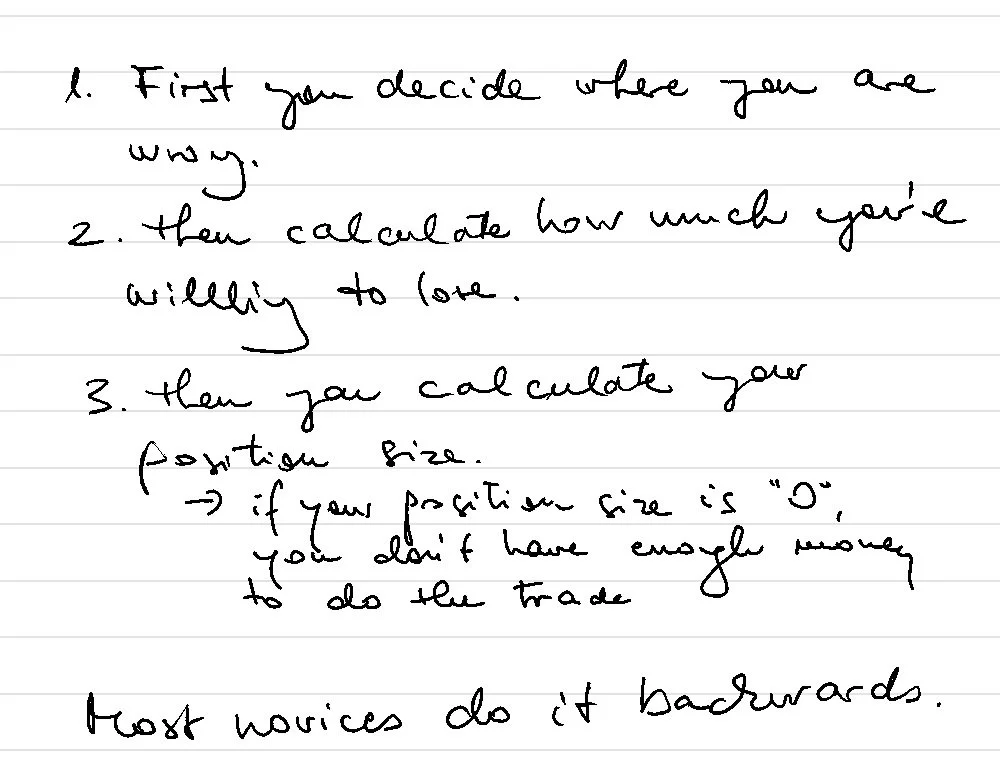 1. First you decide where you are
wrong.
2. then calculate how much you're
willing to lose.
3. then you calculate your
position size.
→ if your position size is "0",
you don't have enough money
to do the trade
Most novices do it backwards.